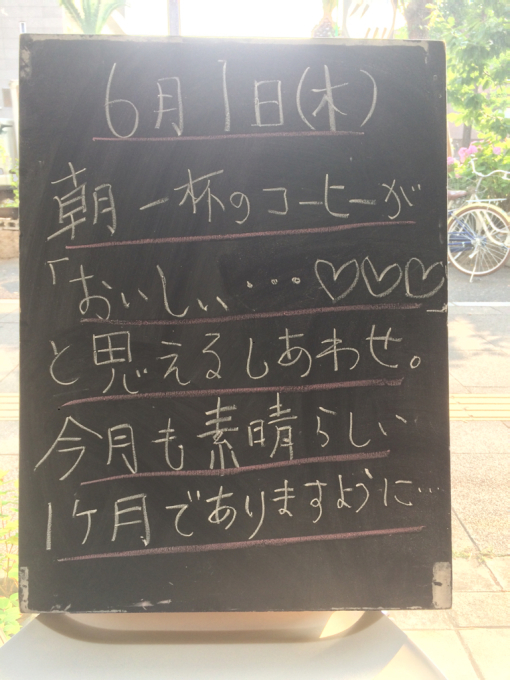 6月1日(木)
朝一杯のコーヒーが
「おいしい・・・♡♡♡」
と思えるしあわせ。
今月も素晴らしい
1ケ月でありますように…